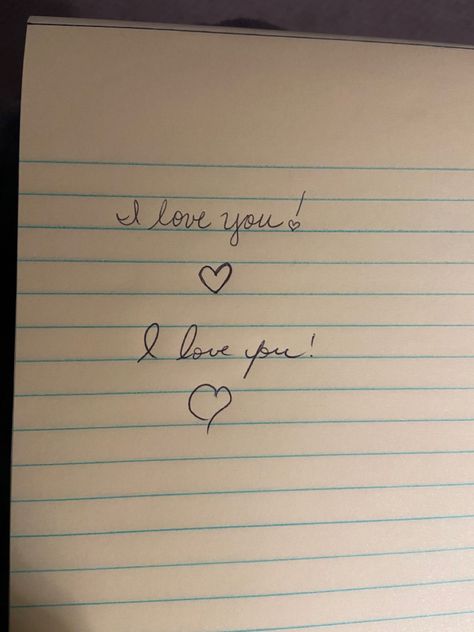 I love you!
I love you!